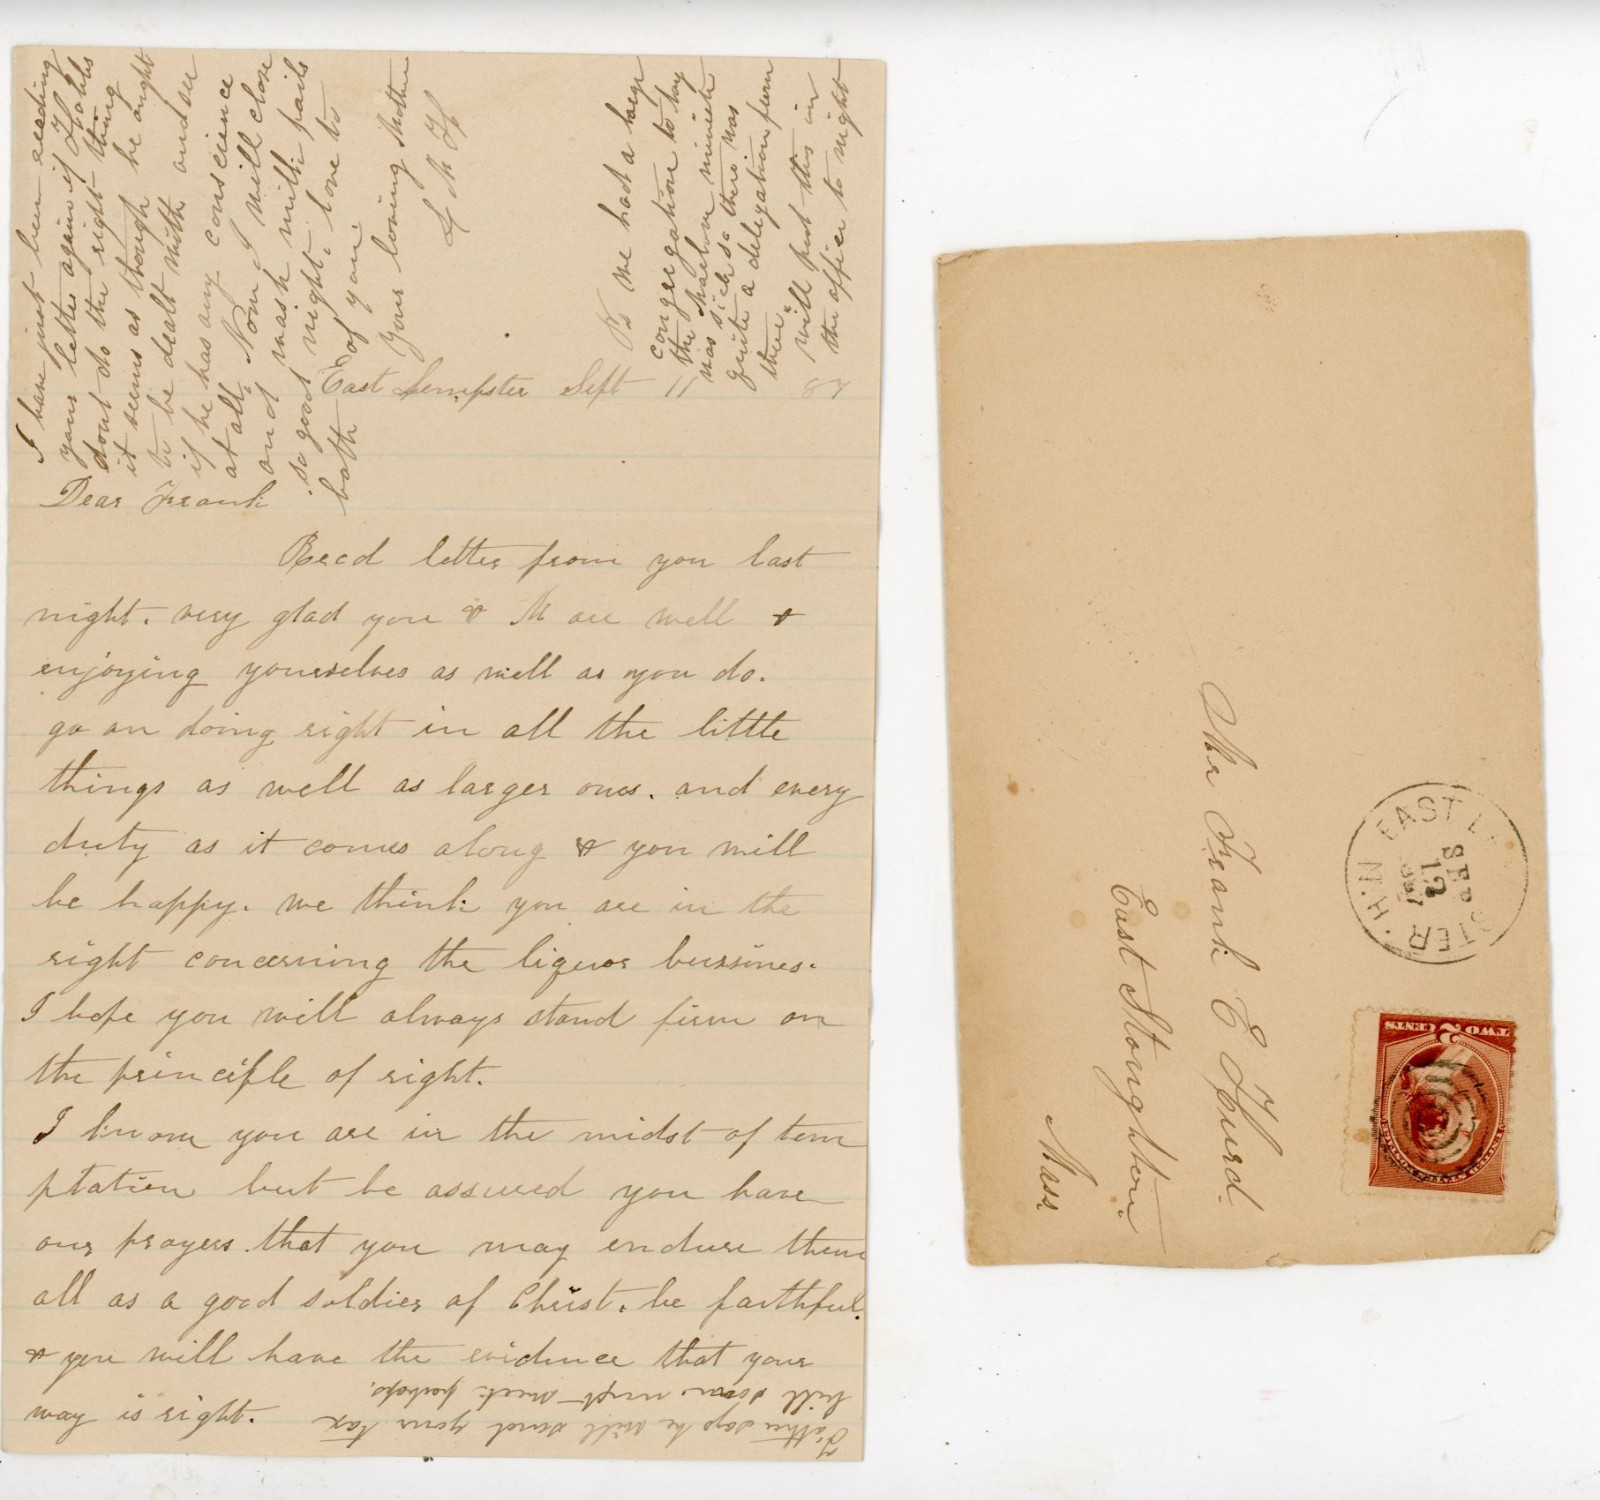 East Lempster Sept 11 87
Dear Frank
Recd letter from you last
night. very glad you & M are well &
enjoying yourselves as well as you do.
go on doing right in all the little
things as well as larger ones. and every
duty as it comes along & you will
be happy. we think you are in the
right concerning the liquor bussines.
I hope you will always stand firm on
the principle of right.
I know you are in the midst of tem
ptation but be assured you have
our prayers. that you may endure them
all as a good soldier of Christ. be faithful.
& you will have the evidence that your
way is right.
Father says he will send your tax
bill soon. next week perhaps.
I have just been reading
your letter again if Hobbs
dont do the right thing
it seems as though he ought
to be dealt with and see
if he has any conscience
at all. Now I will close
and wash milk pails
so good night. love to
both of you.
Your loving Mother
Ps we had a large
congregation to day
the minister
was sick so there was
quite a delegation from
there
will post this in
the office to night
Mr Frank E Hurd
East Stoughton
Mass
EAST L STER N.H.
SEP
12
1887
TWO 2 CENTS